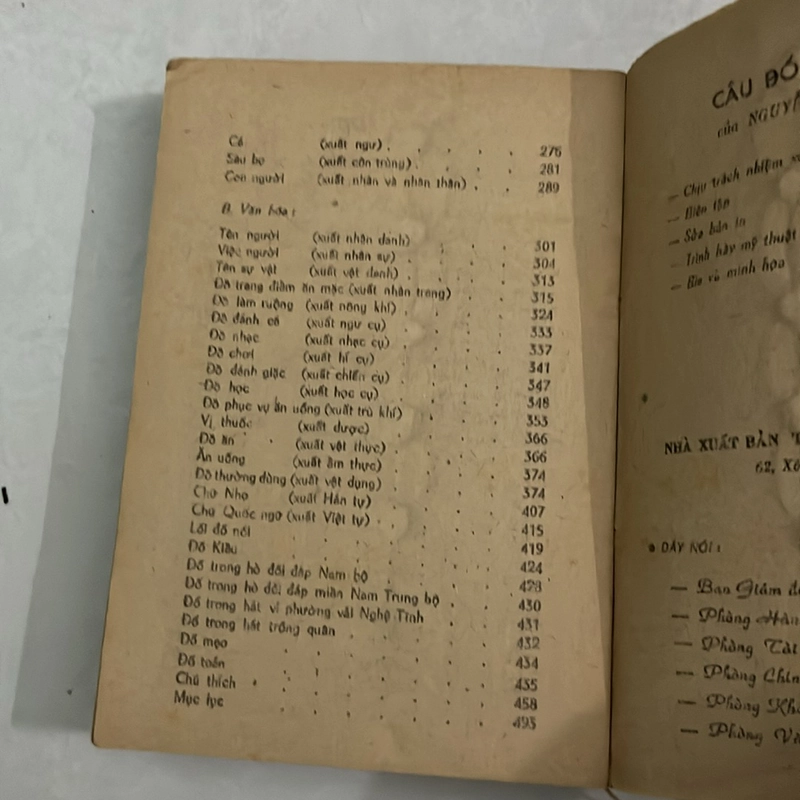 Cá (xuất ngư) . . . . . 276
Sâu bọ (xuất côn trùng) . . . . 281
Con người (xuất nhân và nhân thân) . . 289
B. Văn hóa :
Tên người (xuất nhân danh) 301
Việc người (xuất nhân sự) . . . . 304
Tên sự vật (xuất vật danh) . . . . 313
Đồ trang điểm ăn mặc (xuất nhân trang) . . 315
Đồ làm ruộng (xuất nông khí) . . . . 324
Đồ đánh cá (xuất ngư cụ) . . . . 333
Đồ nhạc (xuất nhạc cụ) . . . . 337
Đồ chơi (xuất hí cụ) . . . . 341
Đồ đánh giặc (xuất chiến cụ) . . . . 347
Đồ học (xuất học cụ) . . . . 348
Đồ phục vụ ăn uống (xuất trù khí) . . . 353
Vị thuốc (xuất dược) . . . . 366
Đồ ăn (xuất vật thực) . . . . 366
Ăn uống (xuất ẩm thực) . . . . 374
Đồ thường dùng (xuất vật dụng) . . . . 374
Chữ Nho (xuất Hán tự) . . . . 407
Chữ Quốc ngữ (xuất Việt tự) . . . . 415
Lối đố nói . . . . . . 419
Đố Kiều . . . . . . 424
Đố trong hò đối đáp Nam bộ . . . . 428
Đố trong hò đối đáp miền Nam Trung bộ . . 430
Đố trong hát ví phường vải Nghệ Tĩnh . . 431
Đố trong hát trống quân . . . . 432
Đố mẹo . . . . . . 434
Đố toán . . . . . . 435
Chú thích . . . . . . 458
Mục lục . . . . . . 495
CÂU ĐỐ
của NGUYỄ
— Chịu trách nhiệm
— Biên tập
— Sửa bản in
— Trình bày mỹ thuật
— Bìa và minh họa
NHÀ XUẤT BẢN
62,
• DÂY NÓI :
— Ban Giám đ
— Phòng Hàn
— Phòng Tài
— Phòng Chín
— Phòng Kh
— Phòng V